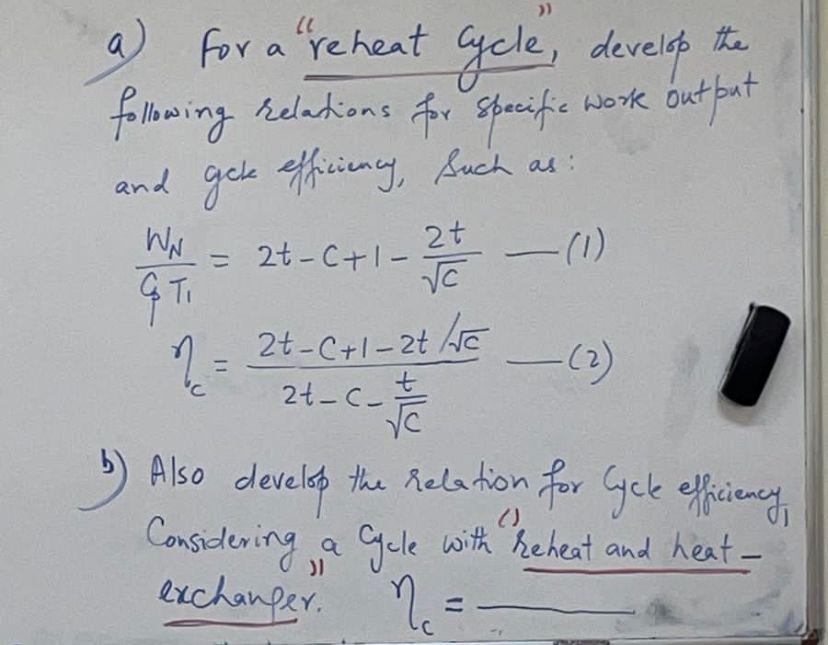 a) For a "reheat Cycle", develop the
following relations for specific work output
and cycle efficiency, such as:
W_N / C_p T_1 = 2t - C + 1 - 2t/√C — (1)
η_c = (2t - C + 1 - 2t/√C) / (2t - C - t/√C) — (2)
b) Also develop the relation for Cycle efficiency,
Considering a Cycle with "reheat and heat-
exchanger". η_c = ———